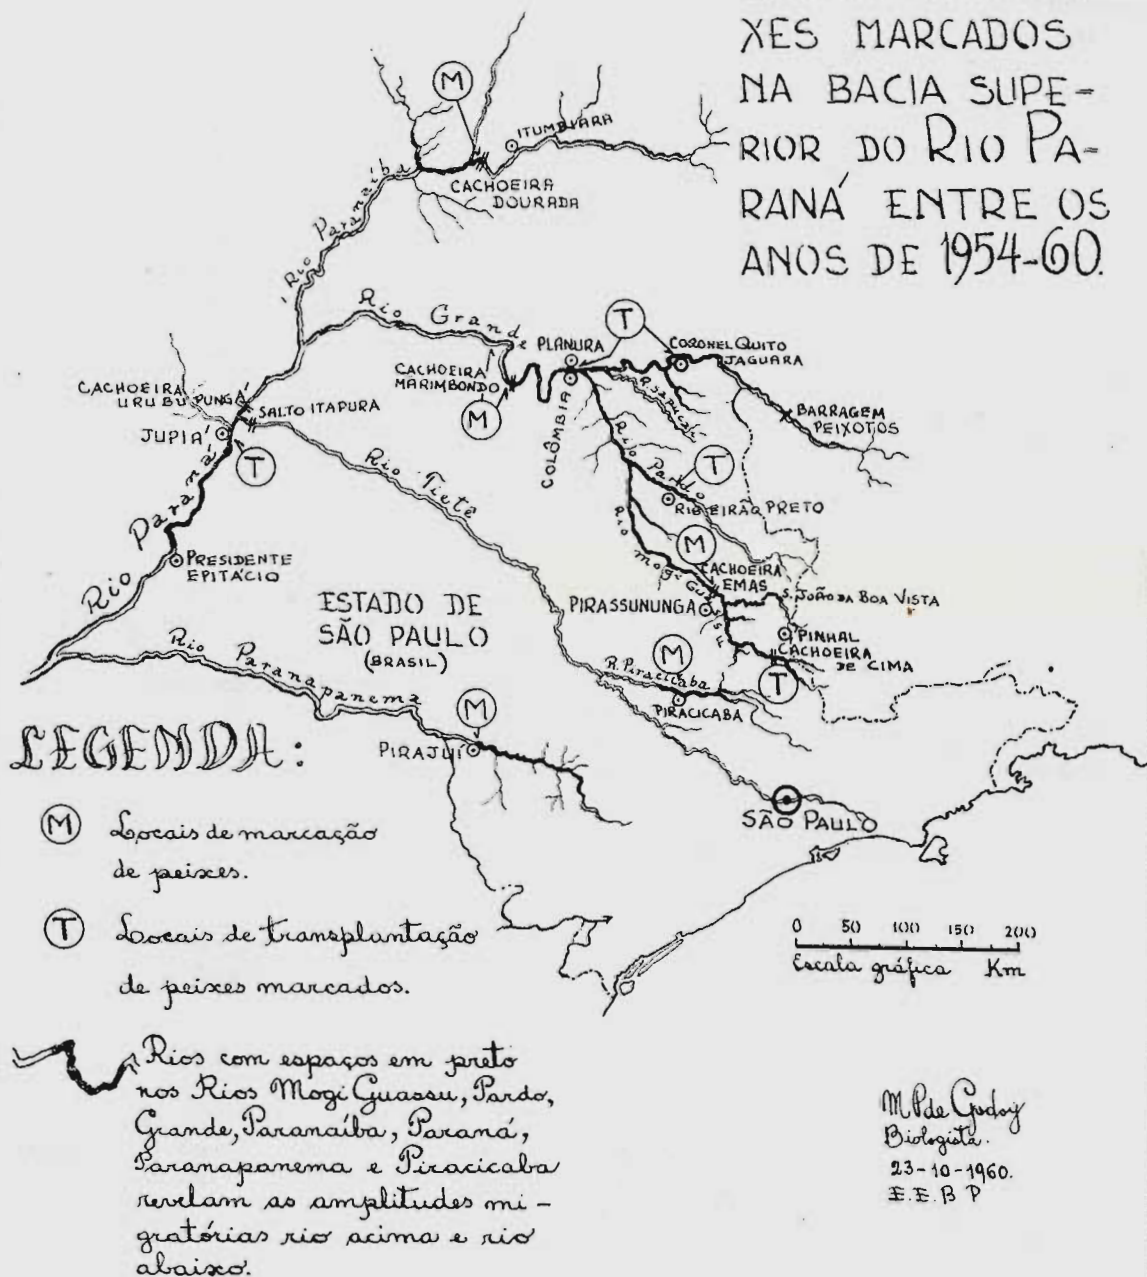 XES MARCADOS
NA BACIA SUPE-
RIOR DO RIO PA-
RANÁ ENTRE OS
ANOS DE 1954-60.
M
ITUMBIARA
CACHOEIRA
DOURADA
Rio Paranaíba
Rio Grande
T
PLANURA
CORONEL QUITO
JAGUARA
CACHOEIRA
MARIMBONDO
M
COLÔMBIA
R. Sapucaí
BARRAGEM
PEIXOTOS
CACHOEIRA
URUBUPUNGÁ
SALTO ITAPURA
JUPIÁ
T
Rio Paraná
Rio Tietê
Rio Pardo
T
RIBEIRÃO PRETO
PRESIDENTE
EPITÁCIO
Rio Mogi Guassu
M
CACHOEIRA
EMAS
S. JOÃO DA BOA VISTA
PIRASSUNUNGA
PINHAL
CACHOEIRA
DE CIMA
T
ESTADO DE
SÃO PAULO
(BRASIL)
Rio Paranapanema
M
R. Piracicaba
PIRACICABA
M
PIRAJUÍ
SÃO PAULO
LEGENDA:
M Locais de marcação
de peixes.
T Locais de transplantação
de peixes marcados.
Rios com espaços em preto
nos Rios Mogi Guassu, Pardo,
Grande, Paranaíba, Paraná,
Paranapanema e Piracicaba
revelam as amplitudes mi-
gratórias rio acima e rio
abaixo.
0 50 100 150 200
Escala gráfica Km
M P de Godoy
Biologista.
23-10-1960.
E.E.B P